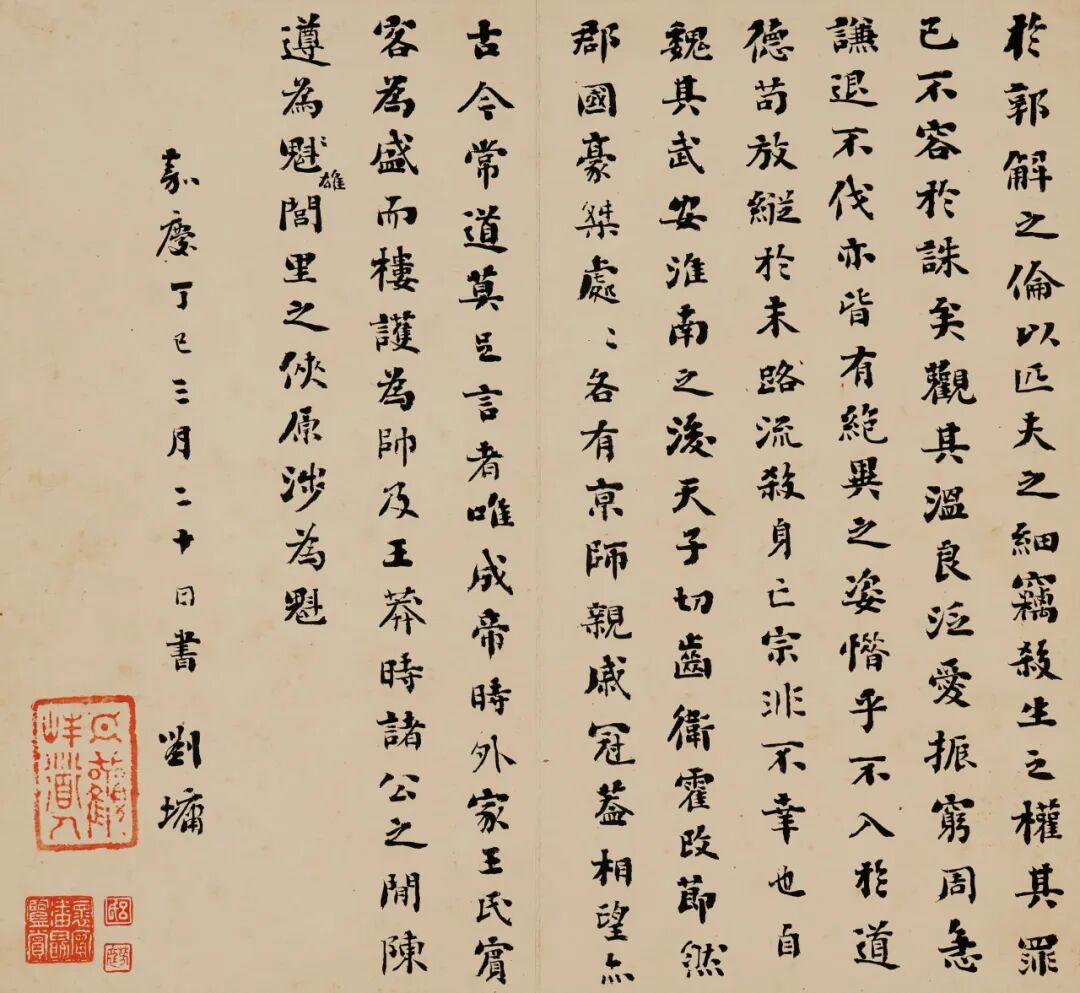 於郭解之倫以匹夫之細竊殺生之權其罪
已不容於誅矣觀其溫良泛愛振窮周急
謙退不伐亦皆有絕異之姿惜乎不入於道
德苟放縱於末路流殺身亡宗非不幸也自
魏其武安淮南之後天子切齒衛霍改節然
郡國豪桀處〻各有京師親戚冠蓋相望亦
古今常道莫足言者唯成帝時外家王氏賓
客為盛而樓護為帥及王莽時諸公之間陳
遵為魁〻雄閭里之俠原涉為魁
嘉慶丁巳三月二十日書 劉墉